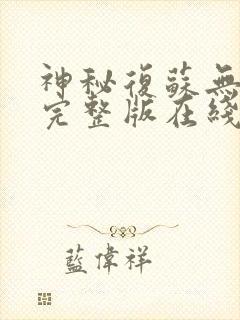 神秘復蘇無
完整版在綫
藍偉祥